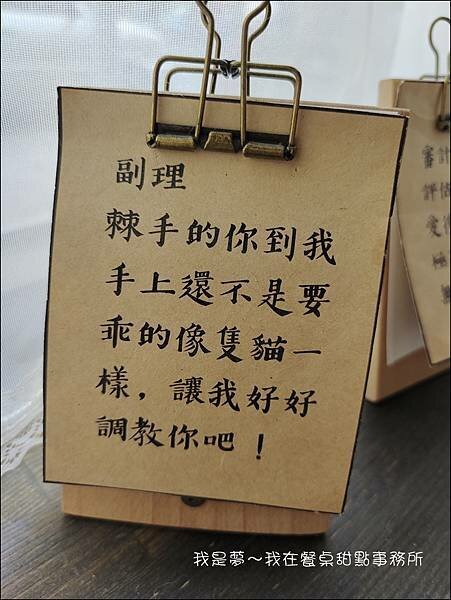 副理
棘手的你到我
手上還不是要
乖的像隻貓一
樣，讓我好好
調教你吧！
審計
評估
我是夢～我在餐桌甜點事務所